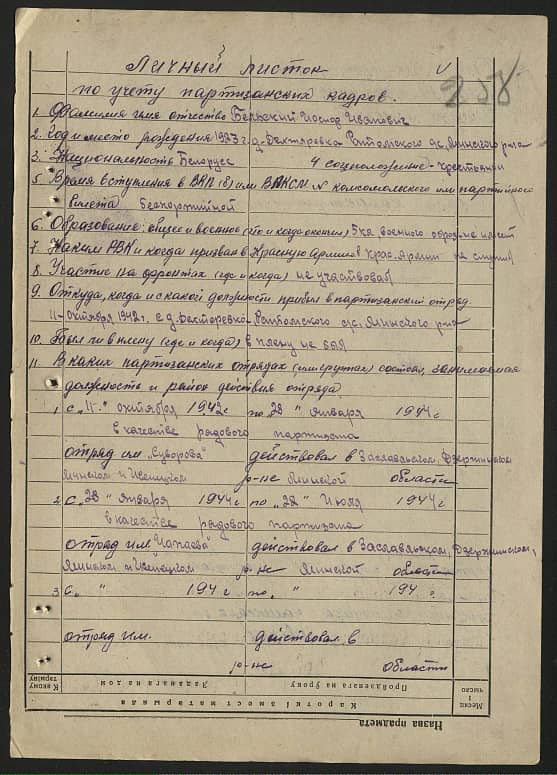 Личный листок
по учету партизанских кадров.
258
1. Фамилия имя отчество Бельский Иосиф Иванович
2. Год и место рождения 1923 г. д. Бехтяревка с/с. Минского р-на
3. Национальность Белорусс 4 соцположение - крестьянин
5. Время вступления в ВКП(б) или ВЛКСМ № комсомольского или партийного
билета беспартийный
6. Образование: общее и военное (что и когда окончил) 5 кл военного образ. не имеет
7. Каким РВК и когда призван в Красную Армию в Крас. Армии не служил
8. Участие на фронтах (где и когда) не участвовал
9. Откуда, когда и с какой должности прибыл в партизанский отряд
11-октября 1942 г. с д. Бехторевка с/с. Минского р-на
10. Был ли в плену (где и когда) в плену не был
11. В каких партизанских отрядах (или группах) состоял, занимаемая
должность и район действия отряда.
1 с „11" октября 1942 г по „28" января 1944 г
в качестве рядового партизана
отряд им „Суворова" действовал в Заславльском, Дзержинском
Минском и Ивенецком р-не Минской области
2 с „28" января 1944 г по „28" Июля 1944 г
в качестве рядового партизана
отряд им. „Чапаева" действовал в Заславльском, Дзержинском,
Минском и Ивенецком р-не Минской области
3 с „ " 194 г по „ " 194 г
отряд им. действовал в
р-не области
К якому тэрміну
Заданага на дом
Пройдзенага на уроку
Месяц і чысло
Кароткі змест матэрыяла
Назва прадмета